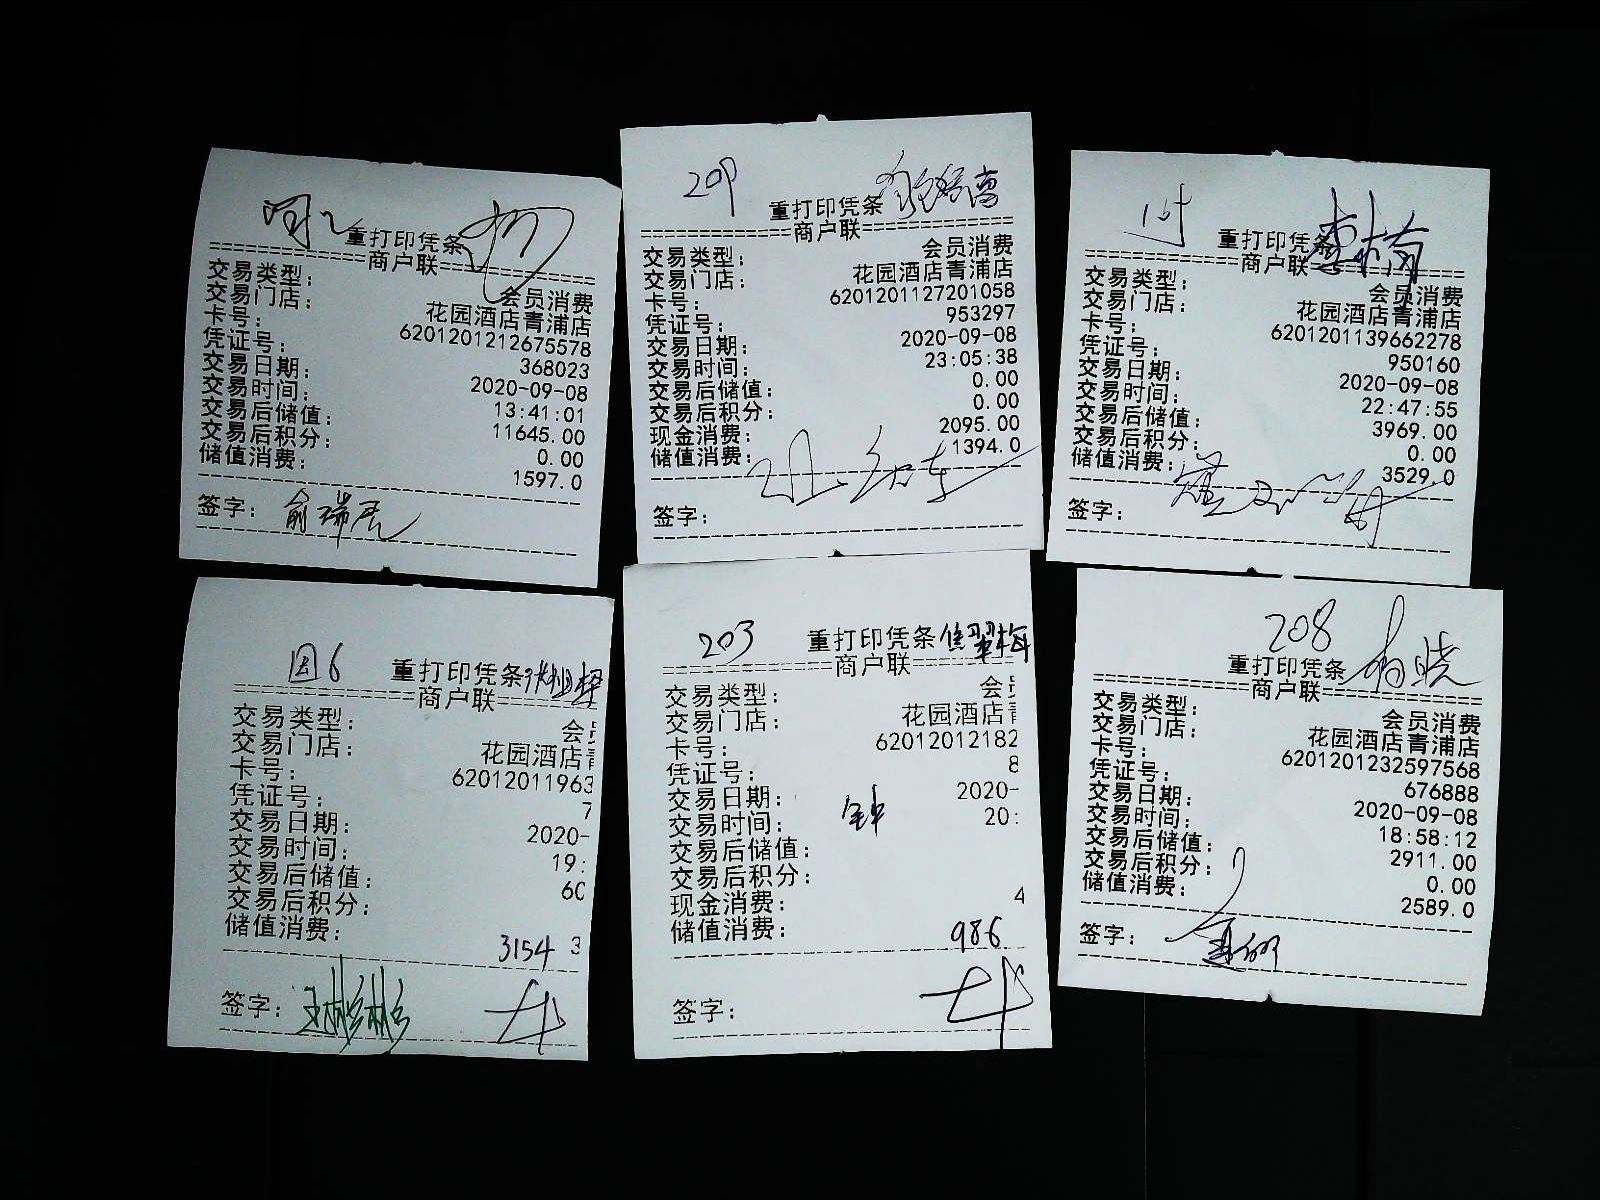 重打印凭条
商户联
交易类型： 会员消费
交易门店： 花园酒店青浦店
卡号： 6201201212675578
凭证号： 368023
交易日期： 2020-09-08
交易时间： 13:41:01
交易后储值： 11645.00
交易后积分： 0.00
储值消费： 1597.0
签字： 俞瑞虎
209
重打印凭条
商户联
交易类型： 会员消费
交易门店： 花园酒店青浦店
卡号： 6201201127201058
凭证号： 953297
交易日期： 2020-09-08
交易时间： 23:05:38
交易后储值： 0.00
交易后积分： 0.00
现金消费： 2095.00
储值消费： 1394.0
签字：
重打印凭条
商户联
交易类型： 会员消费
交易门店： 花园酒店青浦店
卡号： 6201201139662278
凭证号： 950160
交易日期： 2020-09-08
交易时间： 22:47:55
交易后储值： 3969.00
交易后积分： 0.00
储值消费： 3529.0
签字：
园6 重打印凭条
商户联
交易类型： 会员
交易门店： 花园酒店青
卡号： 62012011963
凭证号： 7
交易日期： 2020-
交易时间： 19:
交易后储值： 60
交易后积分：
储值消费： 3154 3
签字：
203 重打印凭条
商户联
交易类型： 会员
交易门店： 花园酒店青
卡号： 62012012182
凭证号： 8
交易日期： 2020-
交易时间： 20:
交易后储值：
交易后积分：
现金消费： 4
储值消费： 986
签字：
208
重打印凭条
商户联
交易类型： 会员消费
交易门店： 花园酒店青浦店
卡号： 6201201232597568
凭证号： 676888
交易日期： 2020-09-08
交易时间： 18:58:12
交易后储值： 2911.00
交易后积分： 0.00
储值消费： 2589.0
签字：